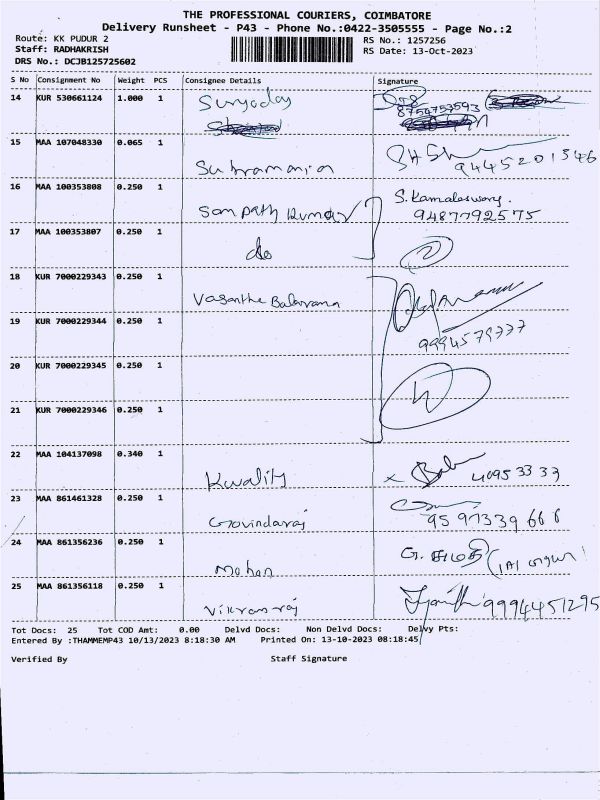 THE PROFESSIONAL COURIERS, COIMBATORE
Delivery Runsheet - P43 - Phone No.:0422-3505555 - Page No.:2
Route: KK PUDUR 2 RS No.: 1257256
Staff: RADHAKRISH RS Date: 13-Oct-2023
DRS No.: DCJB125725602
S No Consignment No Weight PCS Consignee Details Signature
14 KUR 530661124 1.000 1 Suryoday
8754753593
15 MAA 107048330 0.065 1 Subramania 9445201546
16 MAA 100353808 0.250 1 Sampath Kumar S. Kamaleswary.
9487792575
17 MAA 100353807 0.250 1 do 2
18 KUR 7000229343 0.250 1 Vasantha Balarama
19 KUR 7000229344 0.250 1 9994579777
20 KUR 7000229345 0.250 1
21 KUR 7000229346 0.250 1
22 MAA 104137098 0.340 1 Kwality x 4095 33 33
23 MAA 861461328 0.250 1 Govindaraj 9597339666
24 MAA 861356236 0.250 1 Mohan G. சுமதி
25 MAA 861356118 0.250 1 Vikramraj 9994451295
Tot Docs: 25 Tot COD Amt: 0.00 Delvd Docs: Non Delvd Docs: Delvy Pts:
Entered By :THAMMEMP43 10/13/2023 8:18:30 AM Printed On: 13-10-2023 08:18:45
Verified By Staff Signature